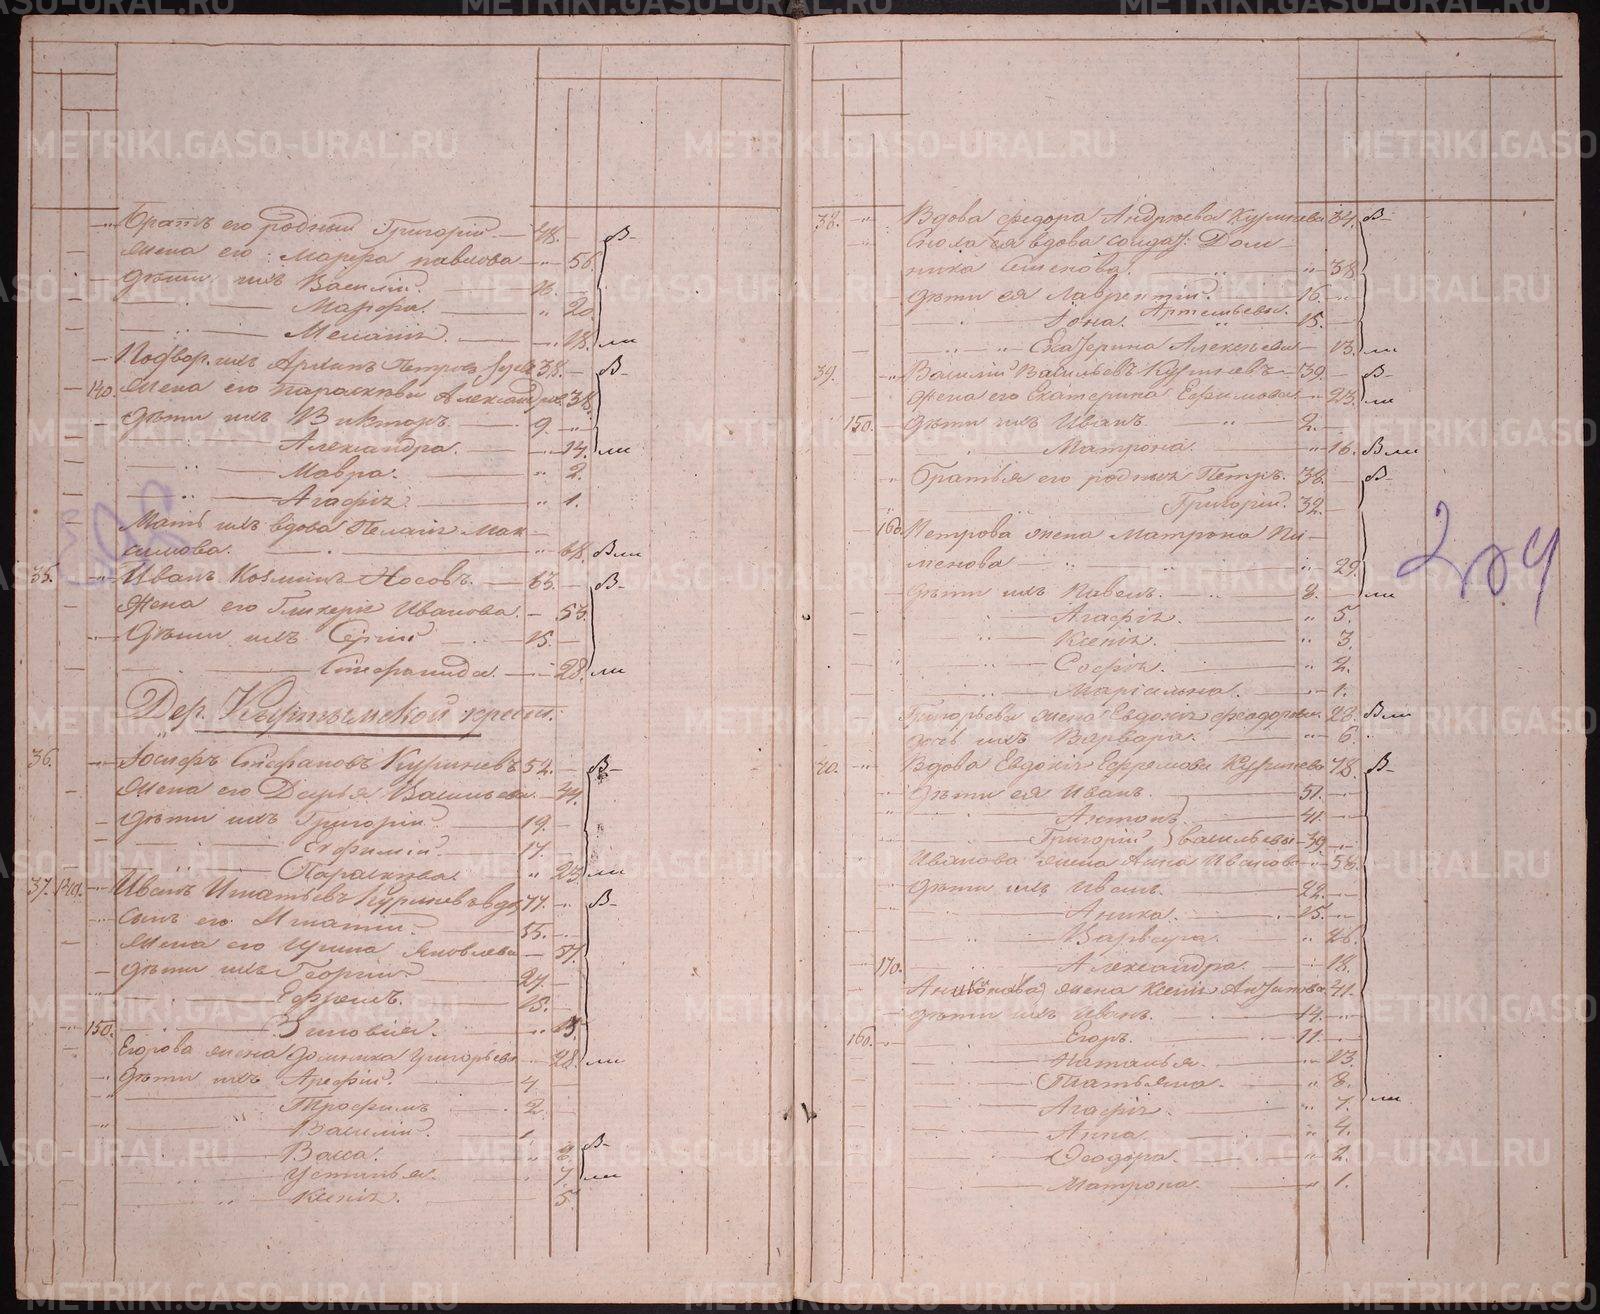 Братъ его родный Григорій 48.
Жена его Марѳа Павлова 56.
Дѣти ихъ Василій
Марѳа. 20
Меланія. 18. ли
Петров 38. В
140. Жена его Параскева Александров. 38.
Дѣти ихъ Викторъ. 9.
Александра. 14. ли
Мавра. 2.
Агафія 1.
Мать ихъ вдова Пелагія Мак-
симова. 68. В ли
35. Иванъ Козминъ Носовъ. 63. В
Жена его Гликерія Иванова. 53.
Дѣти ихъ Сергій 15.
Стефанида. 28. ли
Дер. крест.
36. Іосифъ Стефановъ 52. В
Жена его Дарья Васильева
Дѣти ихъ Григорій 19.
Евфимій. 17.
Параскева. 23. ли
37. Иванъ Игнатьевъ вдов 77. В
Сынъ его Игнатій. 55.
Жена его Ирина Яковлева 57.
Дѣти ихъ Георгій 27.
Ефремъ. 15.
150. Зиновія. 13.
Егорова жена Домника Григорьева 28. ли
Дѣти ихъ Арефій. 4.
Трофимъ 2.
Василій. 1.
Васса. 8. В
Устинья. 7. ли
Ксенія. 5
38. Вдова Федора Андреева 74. В
Сноха ея вдова солдат. Дом-
ника Семенова. 38
Дѣти ея Лаврентій. 16.
Іона. Артемьевы. 15.
Екатерина Алексѣева 13. ли
39. Василій Васильевъ 39. В
Жена его Екатерина Ефимова 23. ли
150. Дѣти ихъ Иванъ. 2.
Матрона. 16. В ли
Братья его родные Петръ. 38. В
Григорій. 32.
160. Петрова жена Матрона Пи-
менова 29.
Дѣти ихъ Павелъ. 8. ли
Агафія. 5.
Ксенія. 3.
Софія. 2.
Маріамна. 1.
Григорьева жена Евдокія Феодорова 28. В ли
дочь ихъ Варвара. 6.
40. Вдова Евдокія Ефремова 78. В
Дѣти ея Иванъ. 51.
Антонъ. 41.
Григорій Васильевы 39
Иванова жена Анна Иванова 58.
Дѣти ихъ Иванъ. 22.
Аника. 15.
Варвара. 26.
170. Александра. 18.
жена Ксенія 41.
Дѣти ихъ Иванъ. 14.
160. Егоръ. 11.
Наталья. 13.
Татьяна. 8.
Агафія. 7. ли
Анна. 4.
Ѳеодора. 2.
Матрона. 1.
204
METRIKI.GASO-URAL.RU